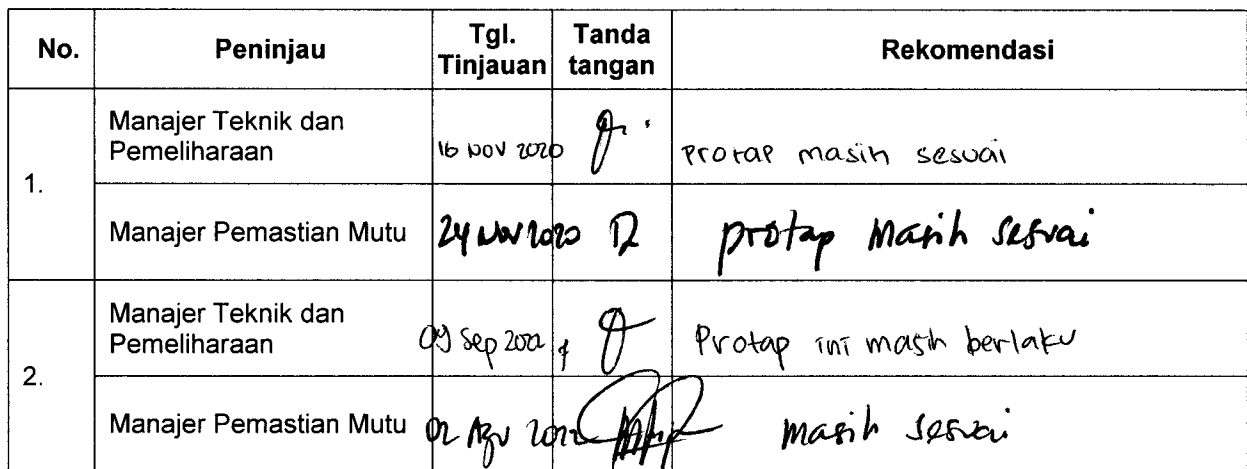 No. Peninjau Tgl. Tinjauan Tanda tangan Rekomendasi
1.
Manajer Teknik dan Pemeliharaan 16 NOV 2020 Protap masih sesuai
Manajer Pemastian Mutu 24 Nov 2020 protap masih sesuai
2.
Manajer Teknik dan Pemeliharaan 09 Sep Protap ini masih berlaku
Manajer Pemastian Mutu 02 Agu 2022 masih sesuai